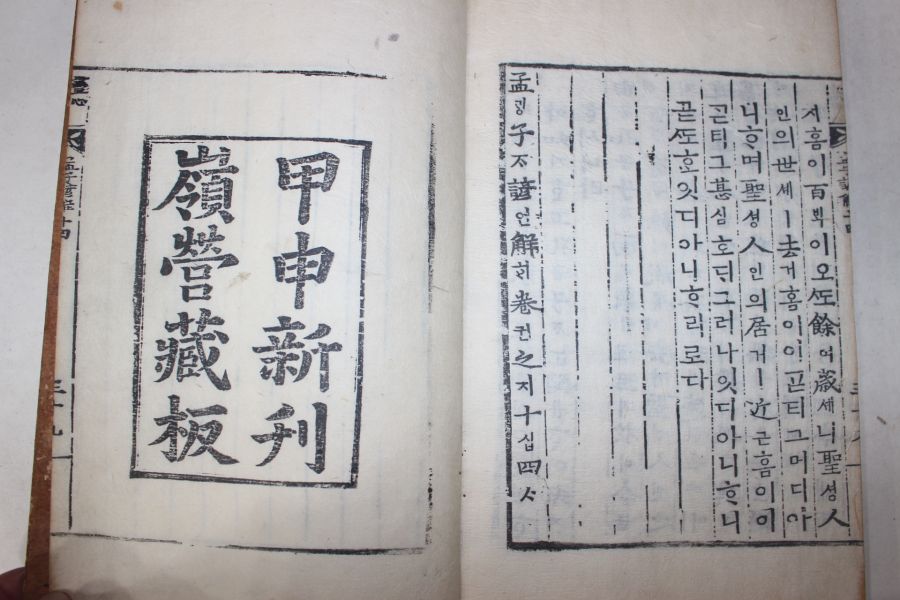 셔홈이百ᄇᆡᆨ이오ᄯᅩ餘여歲셰니聖셩人
인의世셰ㅣ去거홈이이ᄀᆞᆮ티그머디아
니ᄒᆞ며聖셩人인의居거ㅣ近근홈이이
ᄀᆞᆮ티그甚심호ᄃᆡ그러나잇디아니ᄒᆞ니
곧ᄯᅩᄒᆞᆫ잇디아니ᄒᆞ리로다
孟ᄆᆡᆼ子ᄌᆞ諺언解ᄒᆡ卷권之지十십四ᄉᆞ
甲申新刊
嶺營藏板
孟子諺解十四
三十九